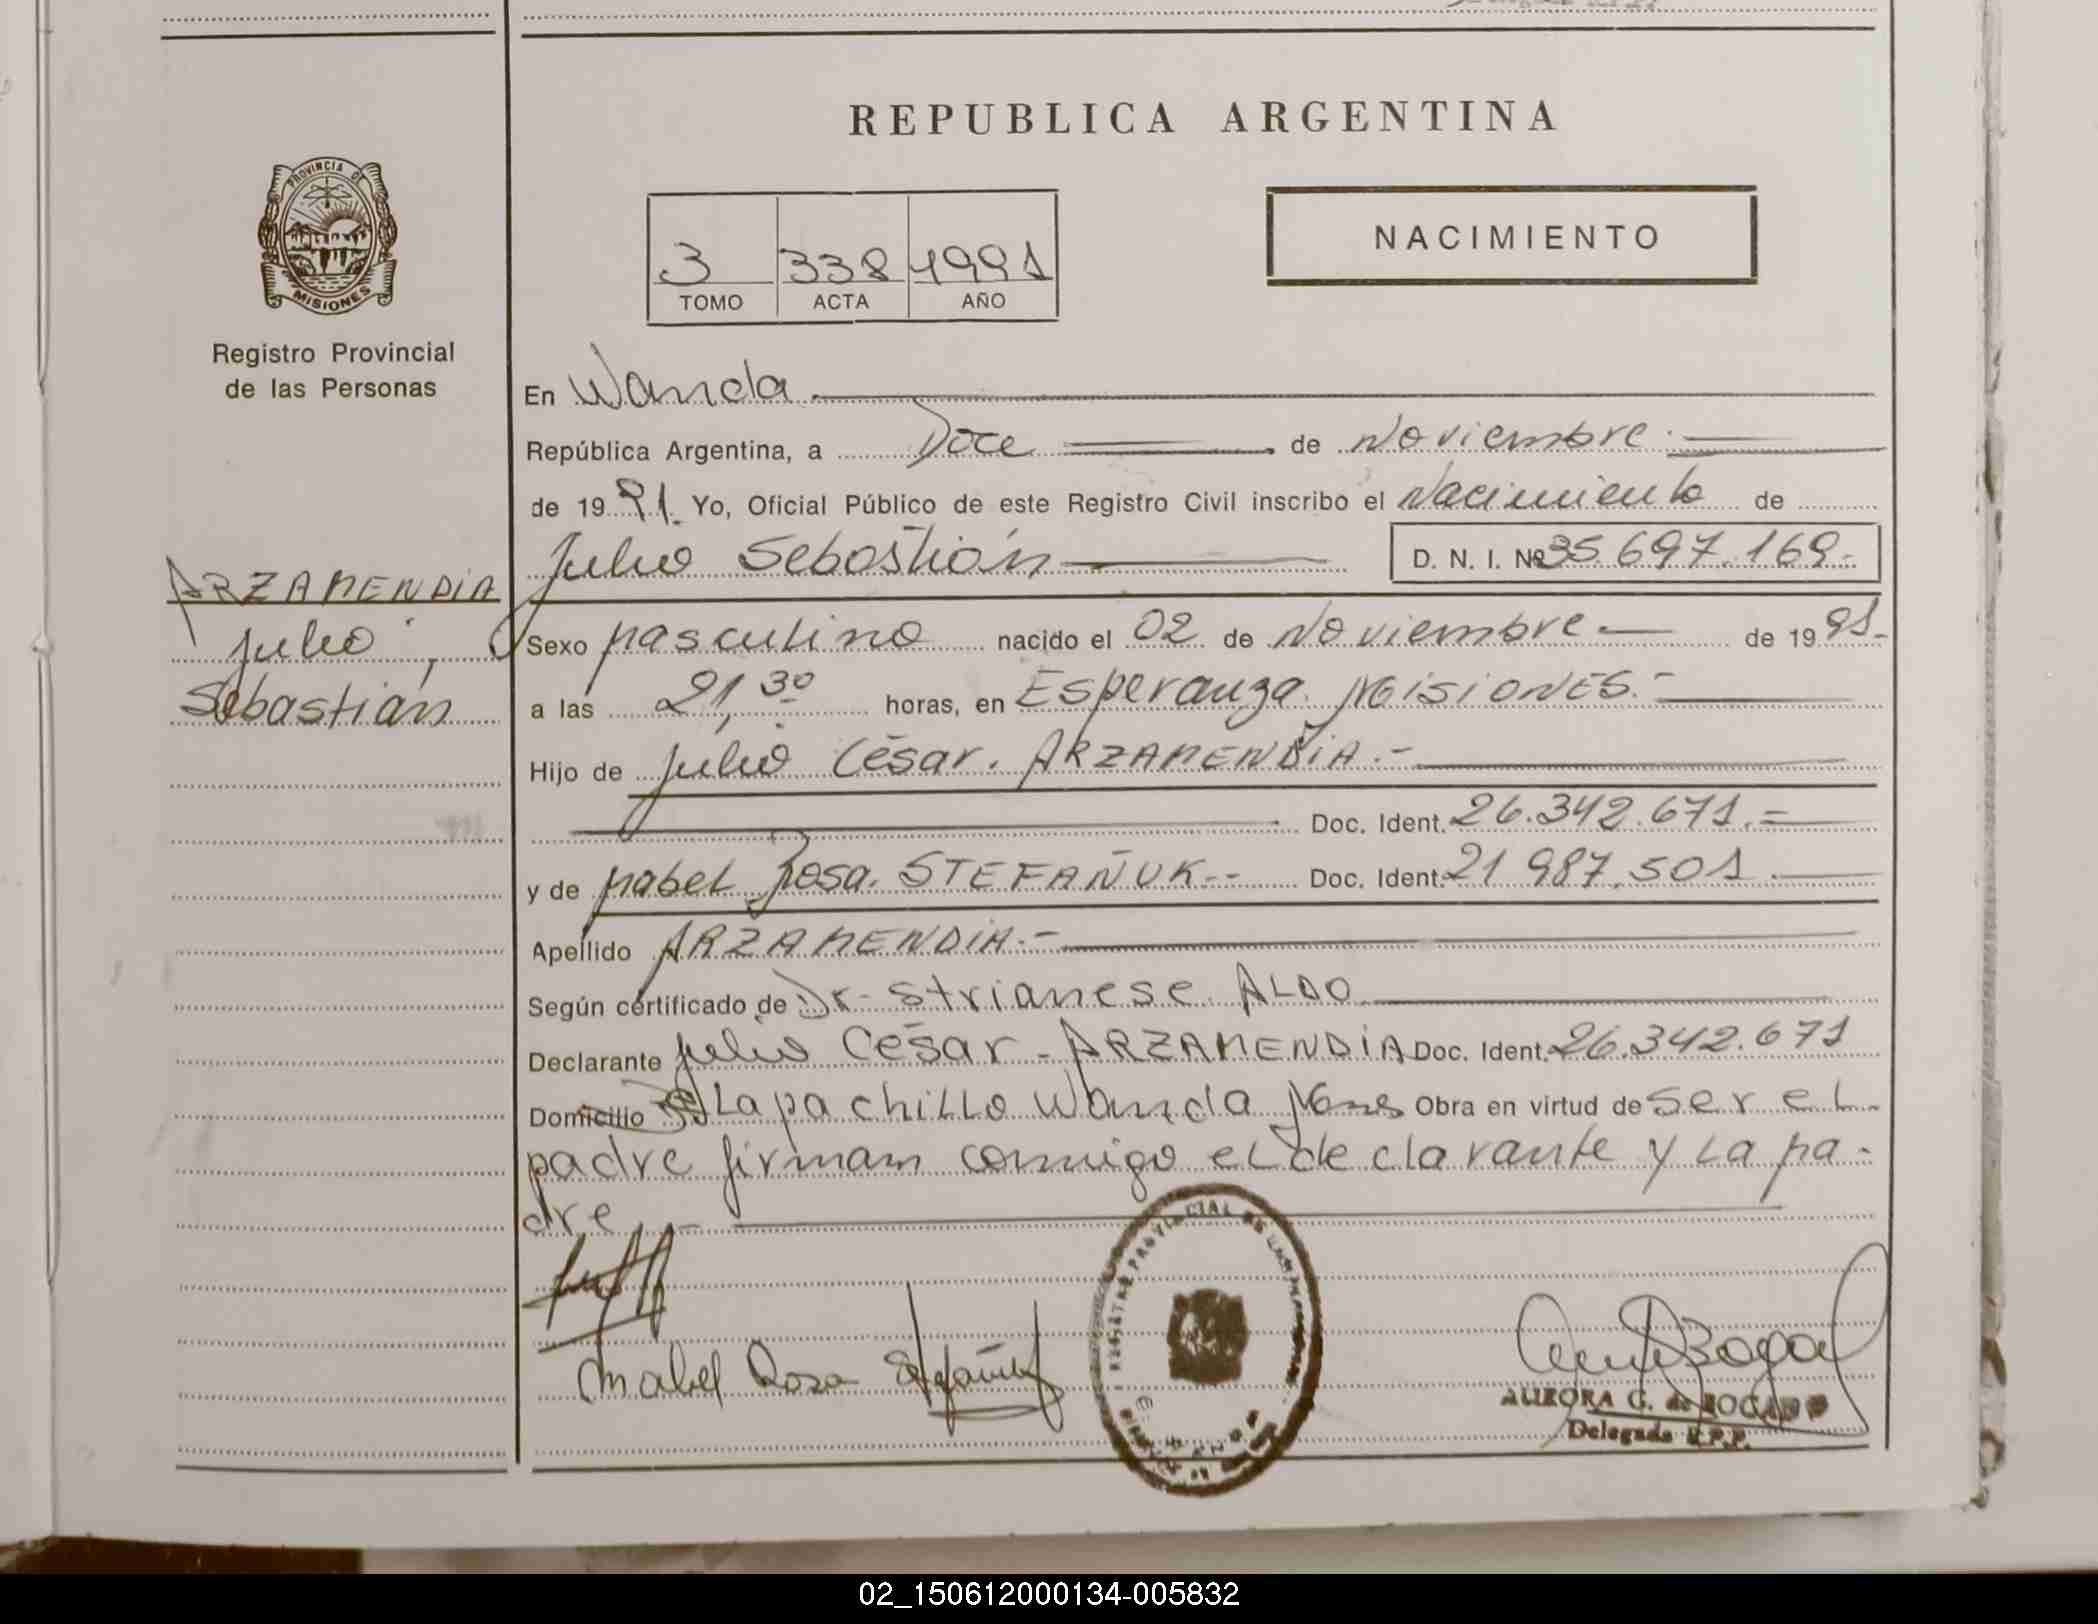 REPUBLICA ARGENTINA
PROVINCIA DE
MISIONES
Registro Provincial
de las Personas
ARZAMENDIA
Julio
Sebastián
3 338 1991
TOMO ACTA AÑO
NACIMIENTO
En Wanda
República Argentina, a Doce de Noviembre
de 1991. Yo, Oficial Público de este Registro Civil inscribo el Nacimiento de
Julio Sebastián D. N. I. Nº 35.697.169.-
Sexo Masculino nacido el 02 de Noviembre de 1991-
a las 21,30 horas, en Esperanza Misiones.-
Hijo de Julio César. ARZAMENDIA.-
Doc. Ident. 26.342.671.=
y de Mabel Rosa. STEFAÑUK.-- Doc. Ident. 21 987.501
Apellido ARZAMENDIA.-
Según certificado de Dr. Strianese ALDO
Declarante Julio César - ARZAMENDIA Doc. Ident. 26.342.671
Domicilio Lapachillo Wanda Mnes Obra en virtud de ser el
padre firman conmigo el declarante y la ma-
dre
Mabel Rosa Stefañuk
AURORA G. de BOGADO
Delegada R.P.P.
02_150612000134-005832